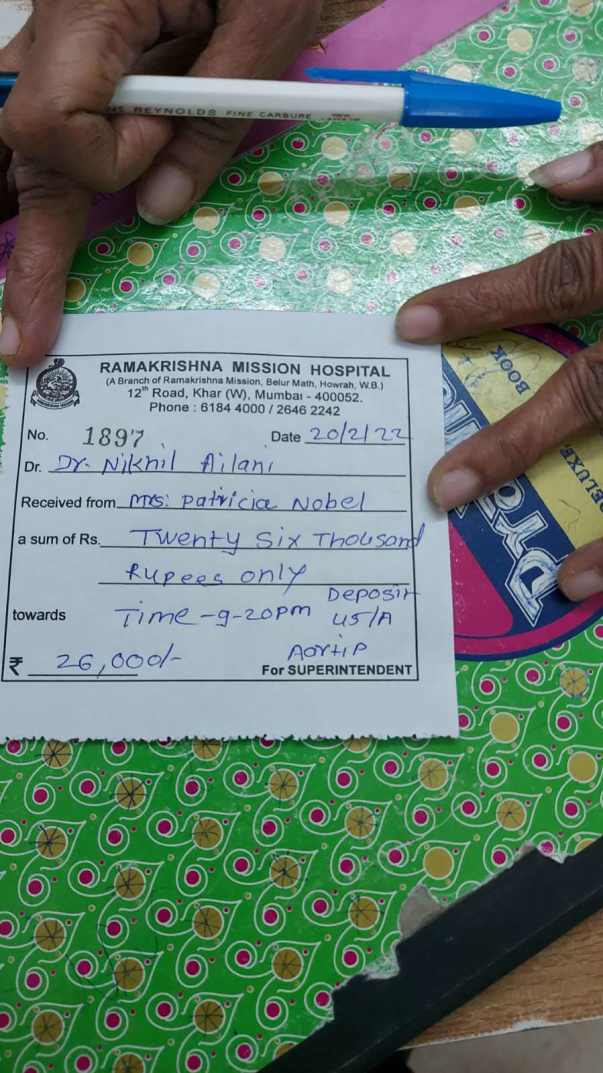 REYNOLDS FINE CARBURE
RAMAKRISHNA MISSION HOSPITAL
(A Branch of Ramakrishna Mission, Belur Math, Howrah, W.B.)
12th Road, Khar (W), Mumbai - 400052.
Phone : 6184 4000 / 2646 2242
No. 1897 Date 20/2/22
Dr. Dr. Nikhil Ailani
Received from Mrs: Patricia Nobel
a sum of Rs. Twenty Six Thousand
Rupees only
Deposit
towards Time-9-20pm
₹ 26,000/-
For SUPERINTENDENT
BOOK
DELUXE